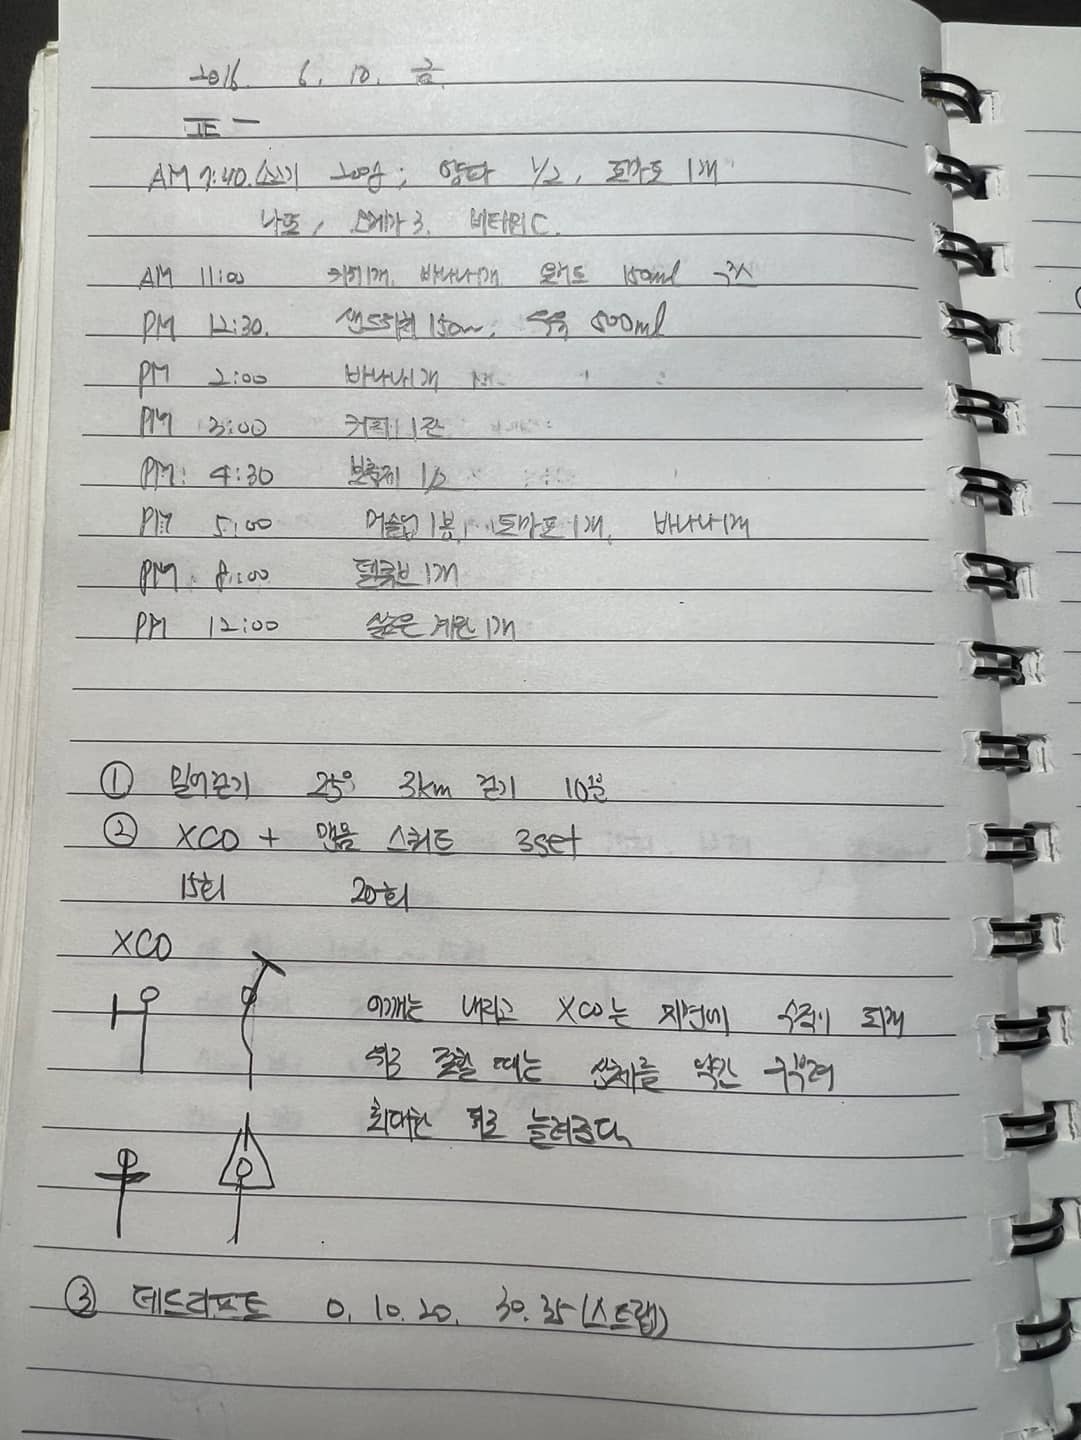 2016. 6. 10. 금.
正一
AM 7:40. 고기 200g ; 양파 1/2, 토마토 1개
나또, 오메가3. 비타민C.
AM 11:00 커피1개, 바나나1개 150ml 주스
PM 12:30. 샌드위치 15cm, 우유 500ml
PM 2:00 바나나1개
PM 3:00 커피 1잔
PM: 4:30 보충제 1/2
PM 5:00 머슬업 1봉, 토마토 1개, 바나나 1개
PM 8:00 1개
PM 12:00 삶은 계란 1개
① 밀어걷기 25° 3km 걷기 10분
② XCO + 맨몸 스쿼트 3set
15회 20회
XCO
어깨는 내리고 XCO는 지면에 수직이 되게
뒤로 젖힐 때는 상체를 약간 구부려
최대한 뒤로 늘려준다.
③ 데드리프트 0. 10. 20. 30. 35 (스트랩)